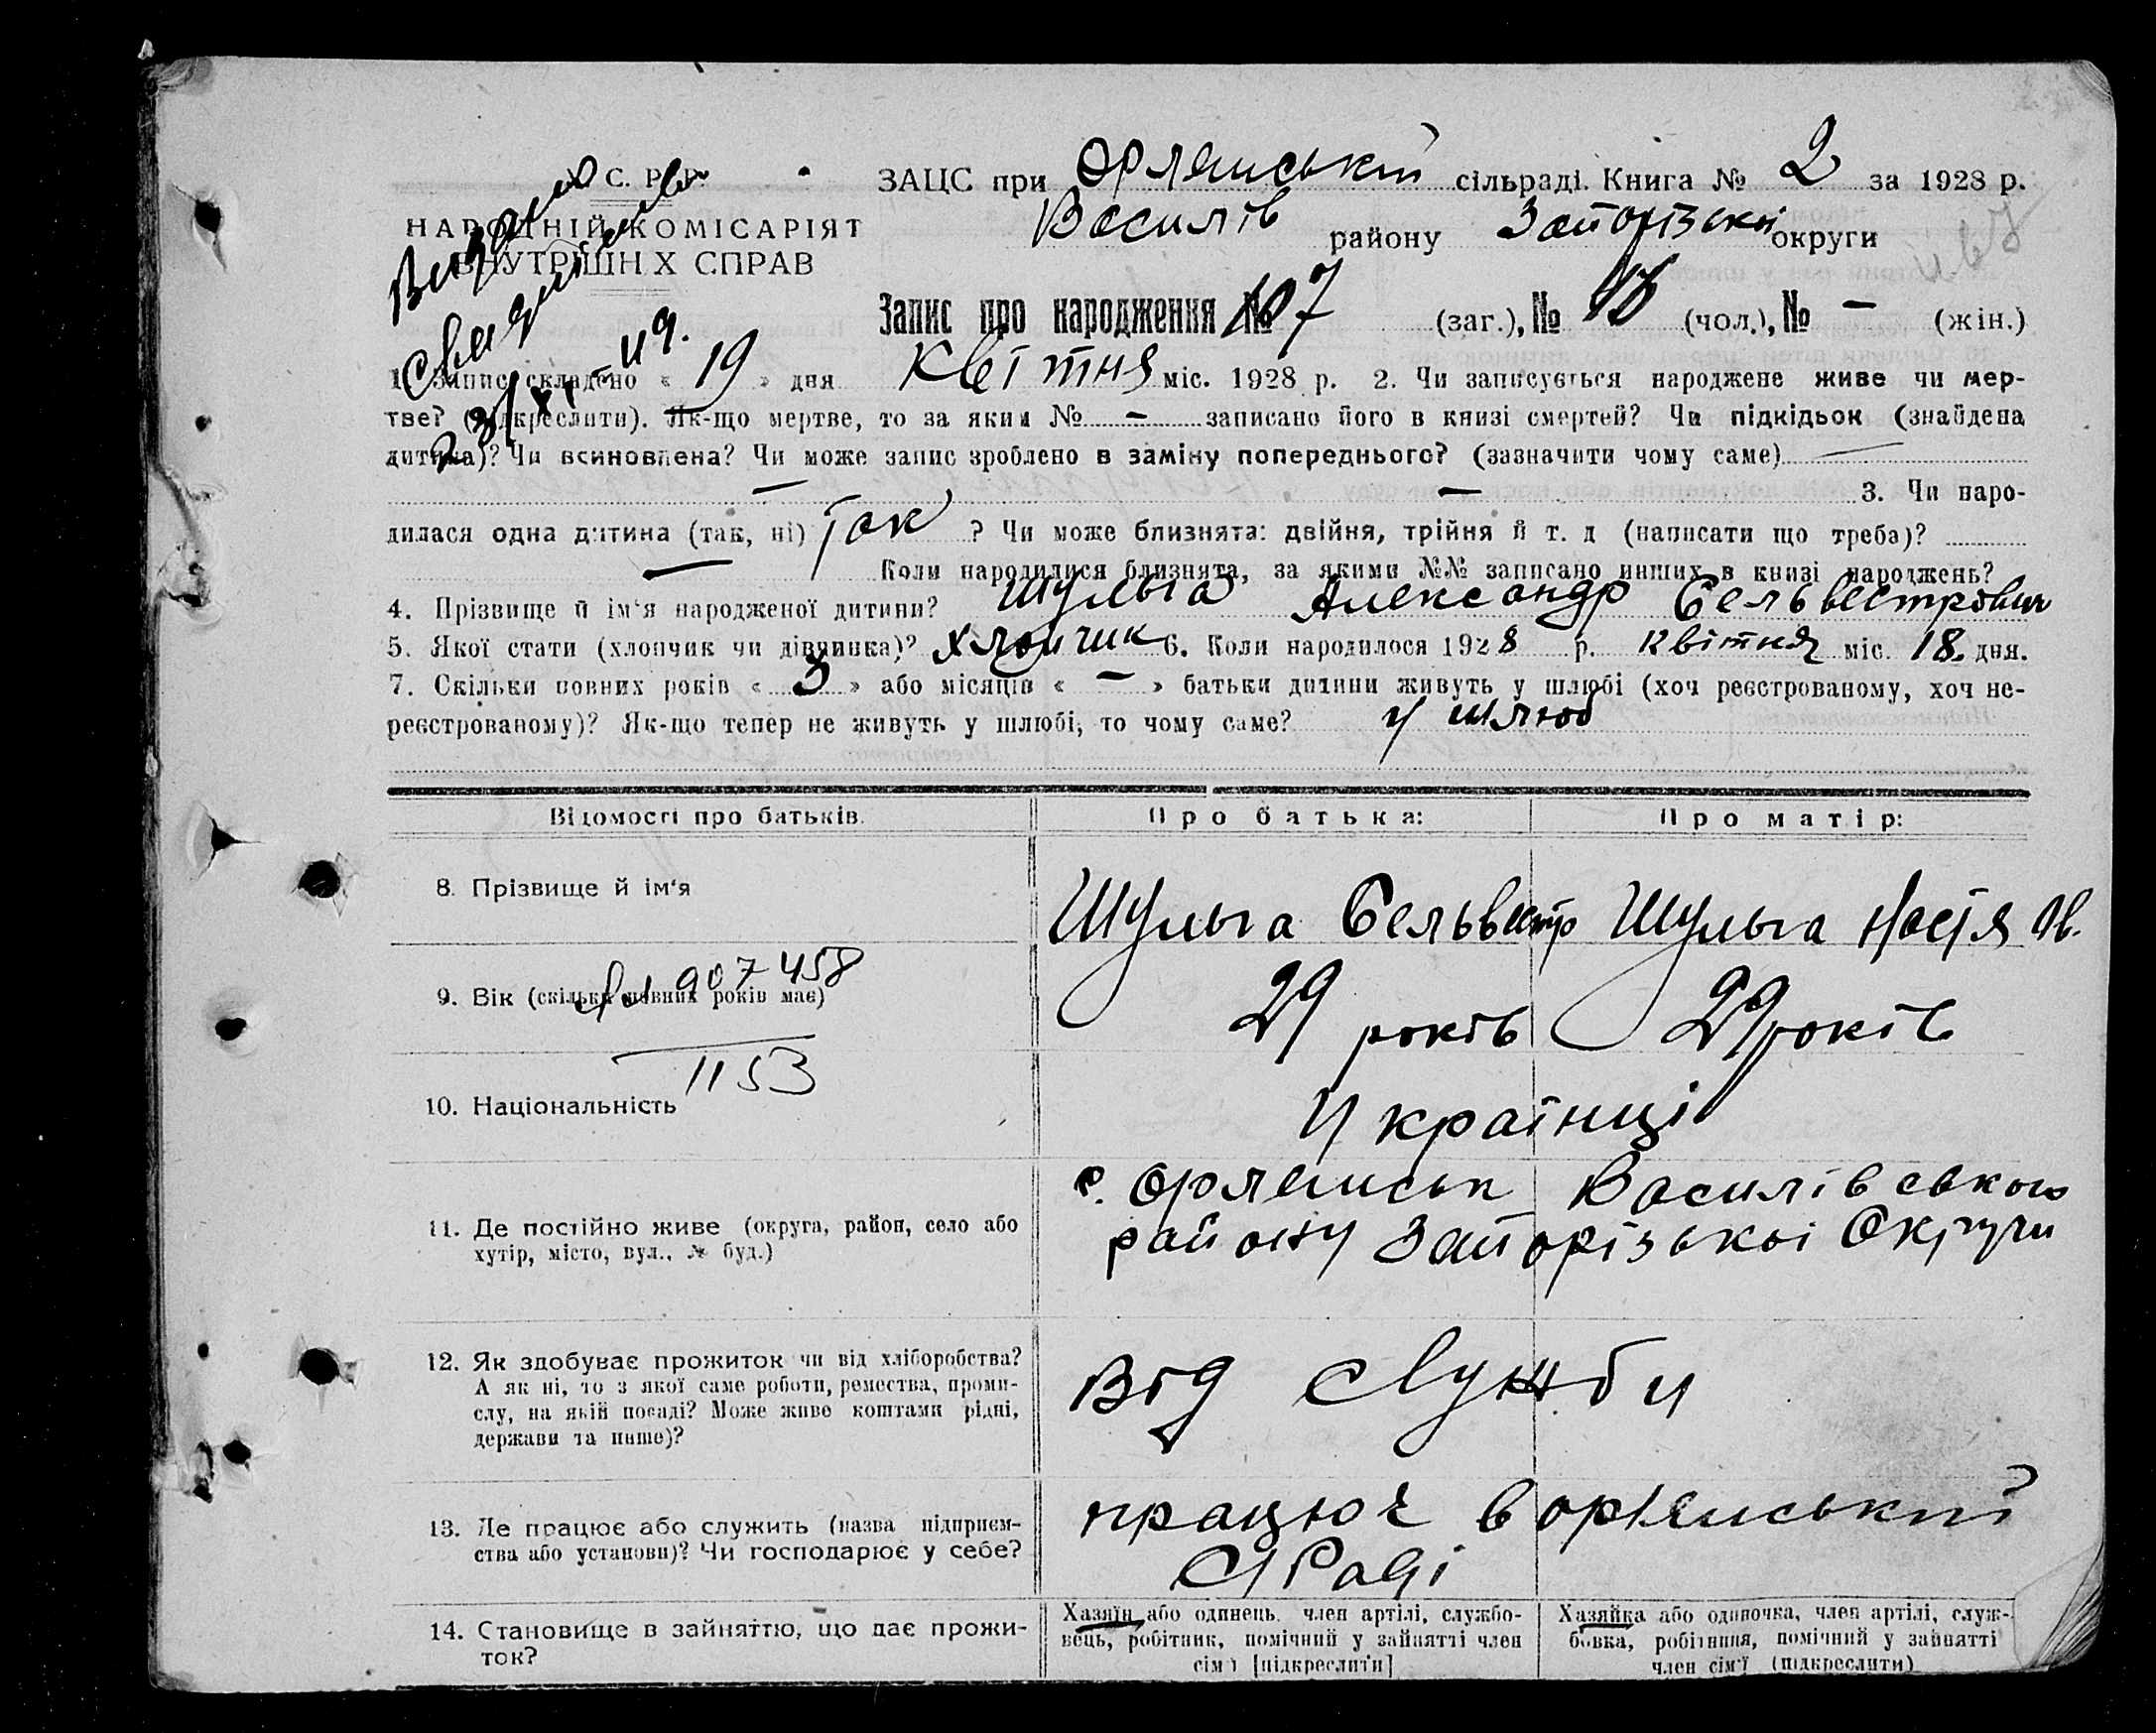 У. С. Р. Р.
НАРОДНІЙ КОМІСАРІЯТ
ВНУТРІШНІХ СПРАВ
Видано
ЗАЦС при Орлянській сільраді. Книга № 2 за 1928 р.
Василів району Запорізької округи
Запис про народження № 107 (заг.), № (чол.), № — (жін.)
1. Запис складено « 19 » дня Квітня міс. 1928 р. 2. Чи записується народжене живе чи мер-
тве? (підкреслити). Як-що мертве, то за яким № — записано його в книзі смертей? Чи підкідьок (знайдена
дитина)? Чи всиновлена? Чи може запис зроблено в заміну попереднього? (зазначити чому саме) —
— — 3. Чи наро-
дилася одна дитина (так, ні) Так ? Чи може близнята: двійня, трійня й т. д (написати що треба)?
— Коли народилися близнята, за якими №№ записано инших в книзі народжень?
4. Прізвище й ім‘я народженої дитини? Шульга Александр Сельвестрович
5. Якої стати (хлопчик чи дівчинка)? хлопчик 6. Коли народилося 1928 р. квітня міс. 18. дня.
7. Скільки повних років « 3 » або місяців « — » батьки дитини живуть у шлюбі (хоч реєстрованому, хоч не-
реєстрованому)? Як-що тепер не живуть у шлюбі, то чому саме? у шлюб
Відомості про батьків. Про батька: Про матір:
8. Прізвище й ім‘я Шульга Сельвестр Шульга Настя Ів.
907458
9. Вік (скільки повних років має) 29 років 29 років
1153
10. Національність Українці
11. Де постійно живе (округа, район, село або
хутір, місто, вул., № буд.)
с. Орлянськ Василівського
району Запорізькоі Округи
12. Як здобуває прожиток чи від хліборобства?
А як ні, то з якої саме роботи, ремества, проми-
слу, на якій посаді? Може живе коштами рідні,
держави та инше)?
Від службу
13. Де працює або служить (назва підприєм-
ства або установи)? Чи господарює у себе?
працює в орлянський
С/Раді
14. Становище в зайняттю, що дає прожи-
ток?
Хазяїн або одинець, член артілі, службо-
вець, робітник, помічний у зайнятті член
сім‘ї [підкреслити]
Хазяйка або одиночка, член артілі, служ-
бовка, робітниця, помічний у зайнятті
член сім‘ї (підкреслити)